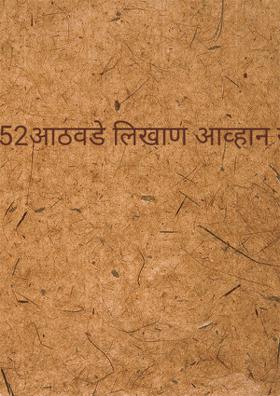 52आठवडे लिखाण आव्हान